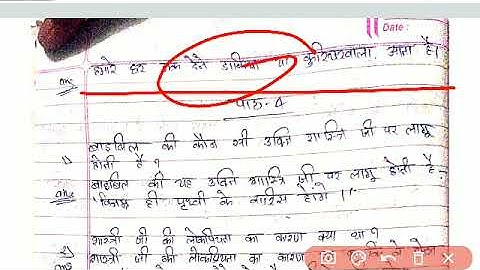 Date:
ans हमारे घर तक देने डाकिया या कुरियरवाला आता है।
पाठ-4
1) बाइबिल की कौन सी उक्ति शास्त्रि जी पर लागू
होती है ?
ans बाइबिल की यह उक्ति शास्त्रि जी पर लागू होती है-
विनम्र ही पृथ्वी के वारिस होंगे।
2) शास्त्री जी की लोकप्रियता का कारण क्या था ?
ans शास्त्री जी की लोकप्रियता का कारण